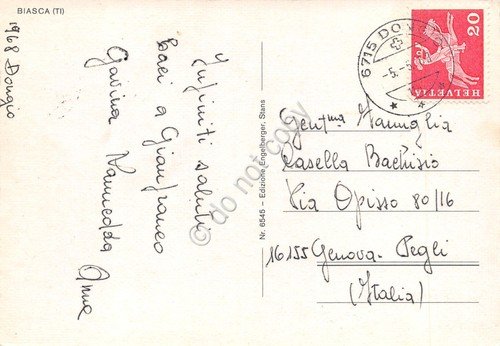 BIASCA (TI)
1968 Dongio
Infiniti saluti
Baci a Gianfranco
Gavina Anna
Nr. 6545 – Edizione Engelberger, Stans
6715 DO
-5.
HELVETIA
20
Gent.ma Famiglia
Casella Bachisio
Via Opisso 80/16
16155 Genova. Pegli
(Italia)
do not copy